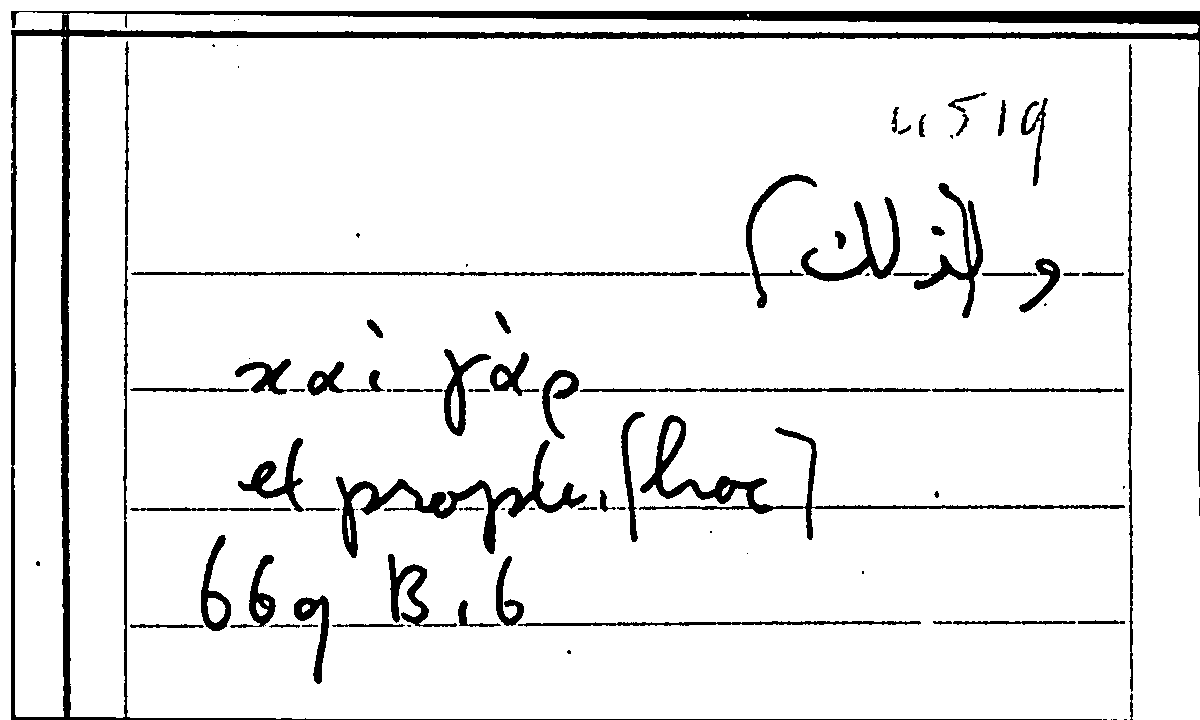 و [لذلك]
καὶ γὰρ
et propter [hoc]
669 B, 6